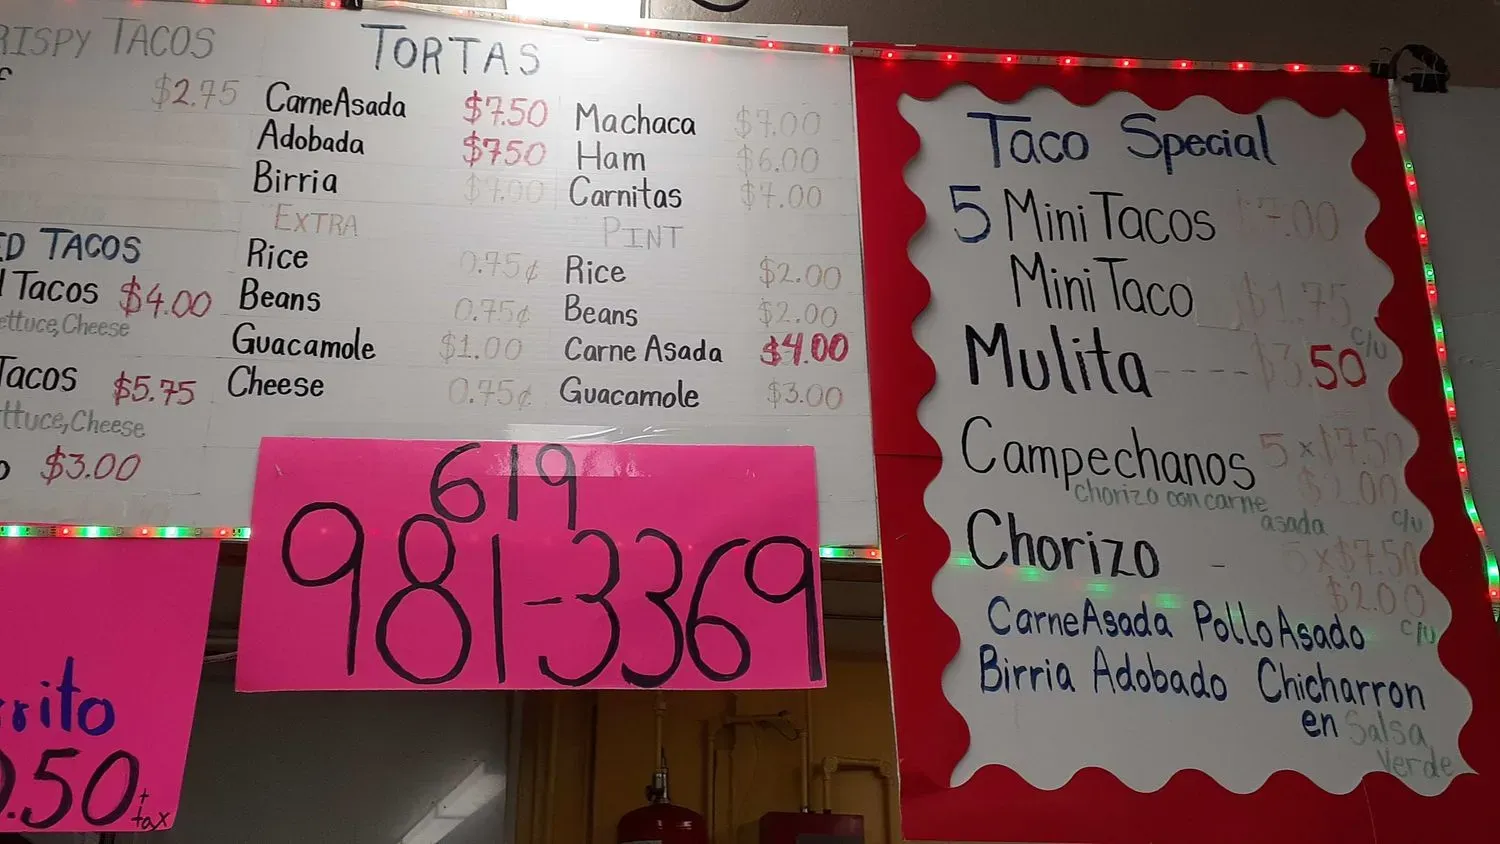 RISPY TACOS
$2.75
ED TACOS
Tacos $4.00
ettuce,Cheese
Tacos $5.75
ttuce,Cheese
o $3.00
TORTAS
CarneAsada $7.50
Adobada $750
Birria $7.00
Machaca $7.00
Ham $6.00
Carnitas $7.00
EXTRA
Rice 0.75¢
Beans 0.75¢
Guacamole $1.00
Cheese 0.75¢
PINT
Rice $2.00
Beans $2.00
Carne Asada $4.00
Guacamole $3.00
619
981-3369
rrito
.50 + tax
Taco Special
5 Mini Tacos $7.00
Mini Taco $1.75
c/u
Mulita ----- $3.50
Campechanos 5 x $7.50
$2.00
chorizo con carne
asada c/u
Chorizo - 5 x $7.50
$2.00
CarneAsada Pollo Asado c/u
Birria Adobado Chicharron
en Salsa
Verde